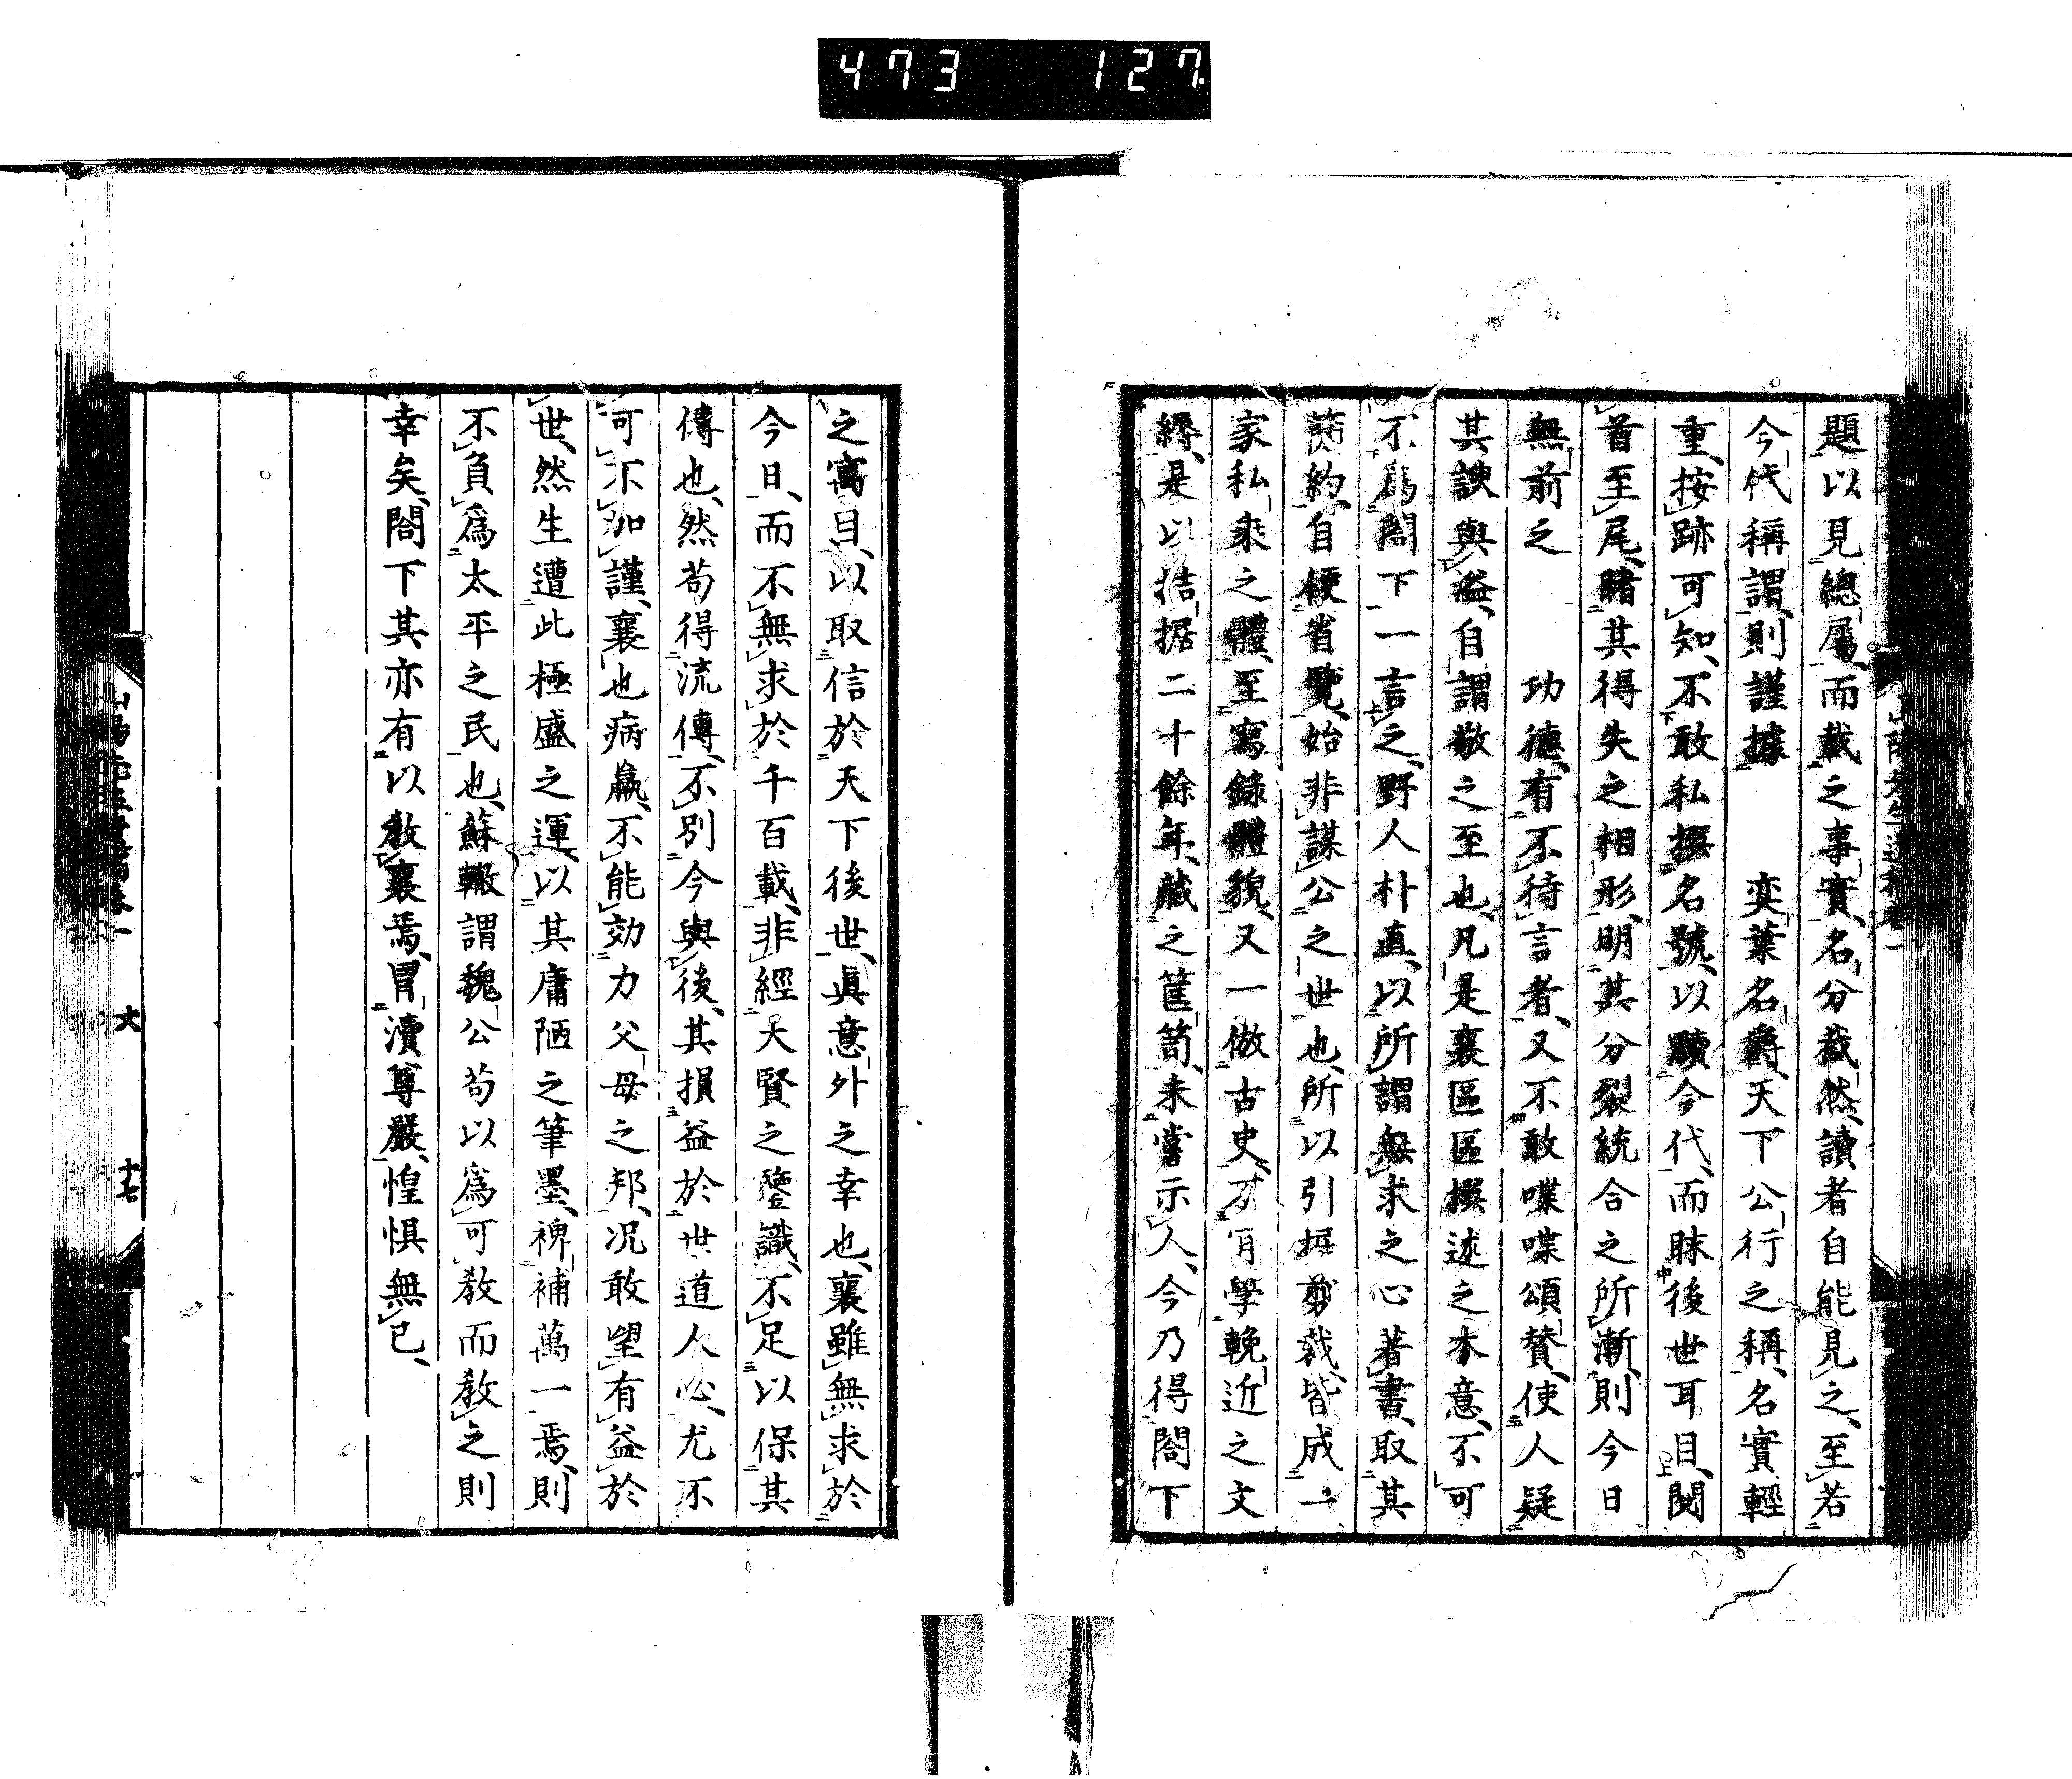 473 127
題以見總屬、而載之事實、名分截然、讀者自能見之、至若
今代稱謂、則謹據 奕葉名爵、天下公行之稱、名實輕
重、按跡可知、不敢私撰名號、以黷今代、而眛後世耳目、閱
首至尾、睹其得失之相形、明其分裂統合之所漸、則今日
無前之 功德、有不待言者、又不敢喋喋頌賛、使人疑
其諛與溢、自謂敬之至也、凡是襄區區撰述之本意、不可
不爲閤下一言之、野人朴直、以所謂無求之心著書、取其
簡約、自便省覽、始非謀公之世也、所以引据剪裁、皆成一
家私乘之體、至寫錄體貌、又一倣古史、不肎學輓近之文
縟、是以拮据二十餘年、藏之筐笥、未嘗示人、今乃得閤下
之寓目、以取信於天下後世、眞意外之幸也、襄雖無求於
今日、而不無求於千百載、非經大賢之鑒識、不足以保其
傳也、然苟得流傳、不別今與後、其損益於世道人心、尤不
可不加謹、襄也病羸、不能効力父母之邦、況敢望有益於
世、然生遭此極盛之運、以其庸陋之筆墨、裨補萬一焉、則
不負爲太平之民也、蘇轍謂魏公苟以爲可教而教之則
幸矣、閤下其亦有以教襄焉、冒瀆尊嚴、惶惧無已、
十七